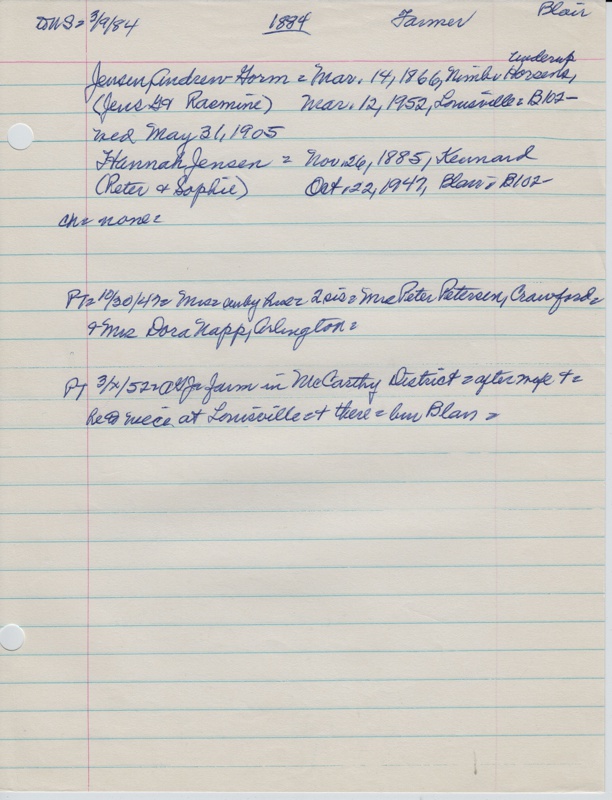 DWS = 3/9/84 1884 Farmer Blair
Underup
Jensen, Andrew Gorm = Mar. 14, 1866, Nimbv Horsens,
(Jens G & Rasmine) Mar. 12, 1952, Louisville = B102-
wed May 31, 1905
Hannah Jensen = Nov. 26, 1885, Kennard
(Peter & Sophie) Oct. 22, 1947, Blair = B102-
ch = none =
PT = 10/30/47 = Mrs = only hus = 2 sis = Mrs Peter Petersen, Crawford =
& Mrs Dora Napp, Arlington =
PT 3/ /52 = farm in McCarthy District = after
niece at Louisville + there = bur Blair =